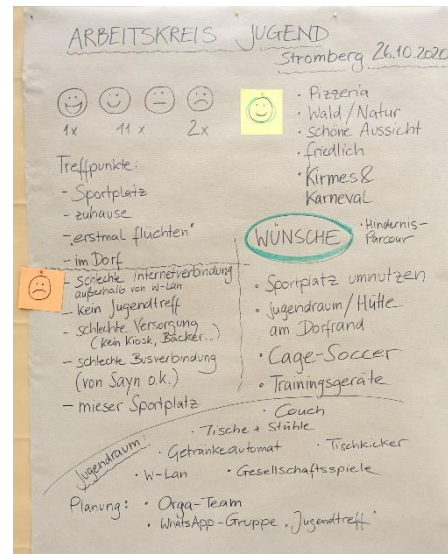 ARBEITSKREIS JUGEND
Stromberg 26.10.2020
1x 11x 2x
• Pizzeria
• Wald/Natur
• schöne Aussicht
• friedlich
• Kirmes &
Karneval
Treffpunkte:
- Sportplatz
- zuhause
- "erstmal fluchten"
- im Dorf
- schlechte Internetverbindung
außerhalb von W-Lan
- kein Jugendtreff
- schlechte Versorgung
(kein Kiosk, Bäcker..)
- schlechte Busverbindung
(von Sayn o.k.)
- mieser Sportplatz
WÜNSCHE
• Hindernis-
Parcour
• Sportplatz umnutzen
• Jugendraum/Hütte
am Dorfrand
• Cage-Soccer
• Trainingsgeräte
Jugendraum:
• Couch
• Tische + Stühle
• Getränkeautomat
• Tischkicker
• W-Lan
• Gesellschaftsspiele
Planung: • Orga-Team
• WhatsApp-Gruppe "Jugendtreff"